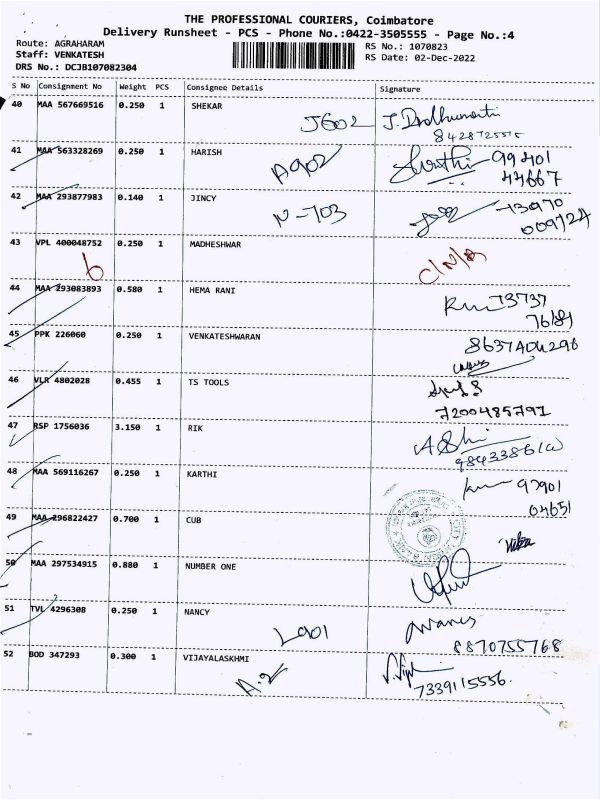 THE PROFESSIONAL COURIERS, Coimbatore
Delivery Runsheet - PCS - Phone No.:0422-3505555 - Page No.:4
Route: AGRAHARAM
RS No.: 1070823
Staff: VENKATESH
RS Date: 02-Dec-2022
DRS No.: DCJB107082304
S No Consignment No Weight PCS Consignee Details Signature
40 MAA 567669516 0.250 1 SHEKAR
J602
8428725515
41 MAA 563328269 0.250 1 HARISH
A902
99401
44667
42 MAA 293877983 0.140 1 JINCY
N-703
73970
009724
43 VPL 400048752 0.250 1 MADHESHWAR
6
C/N/A
44 MAA 293083893 0.580 1 HEMA RANI
73737
76181
45 PPK 226060 0.250 1 VENKATESHWARAN
46 VLR 4802028 0.455 1 TS TOOLS
7200485791
47 RSP 1756036 3.150 1 RIK
48 MAA 569116267 0.250 1 KARTHI
97901
04651
49 MAA 296822427 0.700 1 CUB
50 MAA 297534915 0.880 1 NUMBER ONE
51 TVL 4296308 0.250 1 NANCY
L901
8870755768
52 BOD 347293 0.300 1 VIJAYALASKHMI
A.2
7339115556.